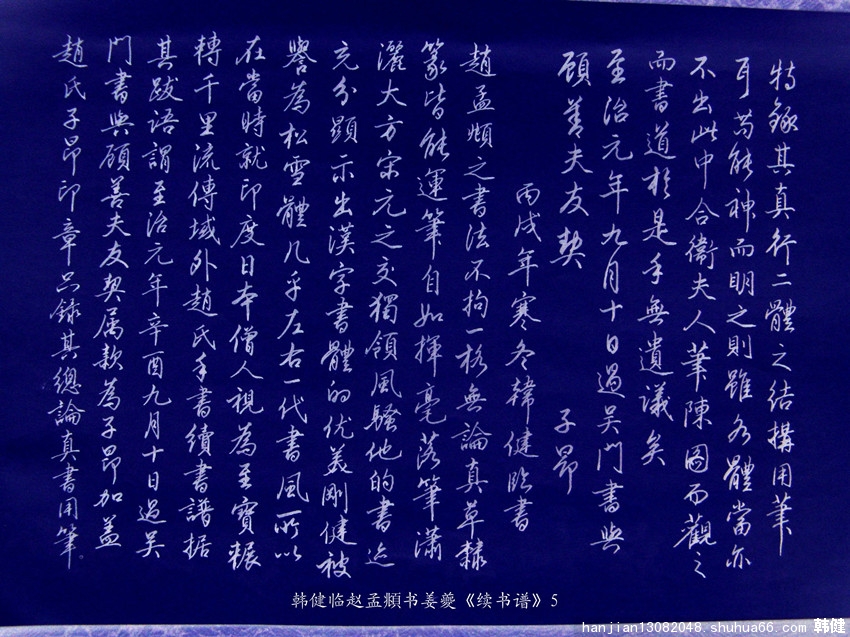 特錄其真行二體之结搆用筆
耳苟能神而明之則雖各體當亦
不出此中合衞夫人筆陳圖而觀之
而書道於是乎無遺議矣
至治元年九月十日過吴門書與
顾善夫友契 子昂
丙戌年寒冬韓健临書
趙孟頫之書法不拘一格無論真草隸
篆皆能運筆自如揮毫落筆瀟
灑大方宋元之交獨領風騷他的書迹
充分顯示出漢字書體的优美剛健被
譽為松雪體几乎左右一代書風所以
在當時就印度日本僧人視為至寶輾
轉千里流傳域外趙氏手書續書譜据
其跋語謂至治元年辛酉九月十日過吴
門書與顾善夫友契属款為子昂加盖
趙氏子昂印章只錄其總論真書用筆。
韩健临赵孟頫书姜夔《续书谱》5
hanjian13082048.shuhua66.com 韩健